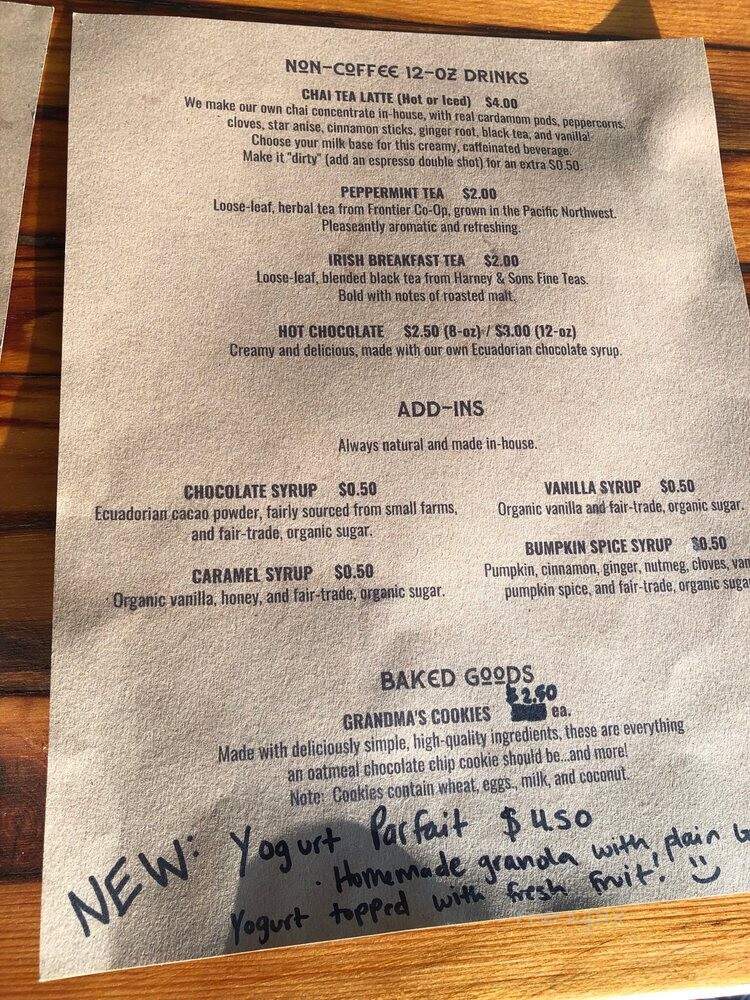 NON-COFFEE 12-OZ DRINKS
CHAI TEA LATTE (Hot or Iced) $4.00
We make our own chai concentrate in-house, with real cardamom pods, peppercorns,
cloves, star anise, cinnamon sticks, ginger root, black tea, and vanilla!
Choose your milk base for this creamy, caffeinated beverage.
Make it "dirty" (add an espresso double shot) for an extra $0.50.
PEPPERMINT TEA $2.00
Loose-leaf, herbal tea from Frontier Co-Op, grown in the Pacific Northwest.
Pleaseantly aromatic and refreshing.
IRISH BREAKFAST TEA $2.00
Loose-leaf, blended black tea from Harney & Sons Fine Teas.
Bold with notes of roasted malt.
HOT CHOCOLATE $2.50 (8-oz) / $3.00 (12-oz)
Creamy and delicious, made with our own Ecuadorian chocolate syrup.
ADD-INS
Always natural and made in-house.
CHOCOLATE SYRUP $0.50
Ecuadorian cacao powder, fairly sourced from small farms,
and fair-trade, organic sugar.
CARAMEL SYRUP $0.50
Organic vanilla, honey, and fair-trade, organic sugar.
VANILLA SYRUP $0.50
Organic vanilla and fair-trade, organic sugar.
BUMPKIN SPICE SYRUP $0.50
Pumpkin, cinnamon, ginger, nutmeg, cloves, van
pumpkin spice, and fair-trade, organic suga
BAKED GOODS
$2.50
GRANDMA'S COOKIES ea.
Made with deliciously simple, high-quality ingredients, these are everything
an oatmeal chocolate chip cookie should be...and more!
Note: Cookies contain wheat, eggs,, milk, and coconut.
NEW: Yogurt Parfait $4.50
· Homemade granola with plain
Yogurt topped with fresh fruit! :)